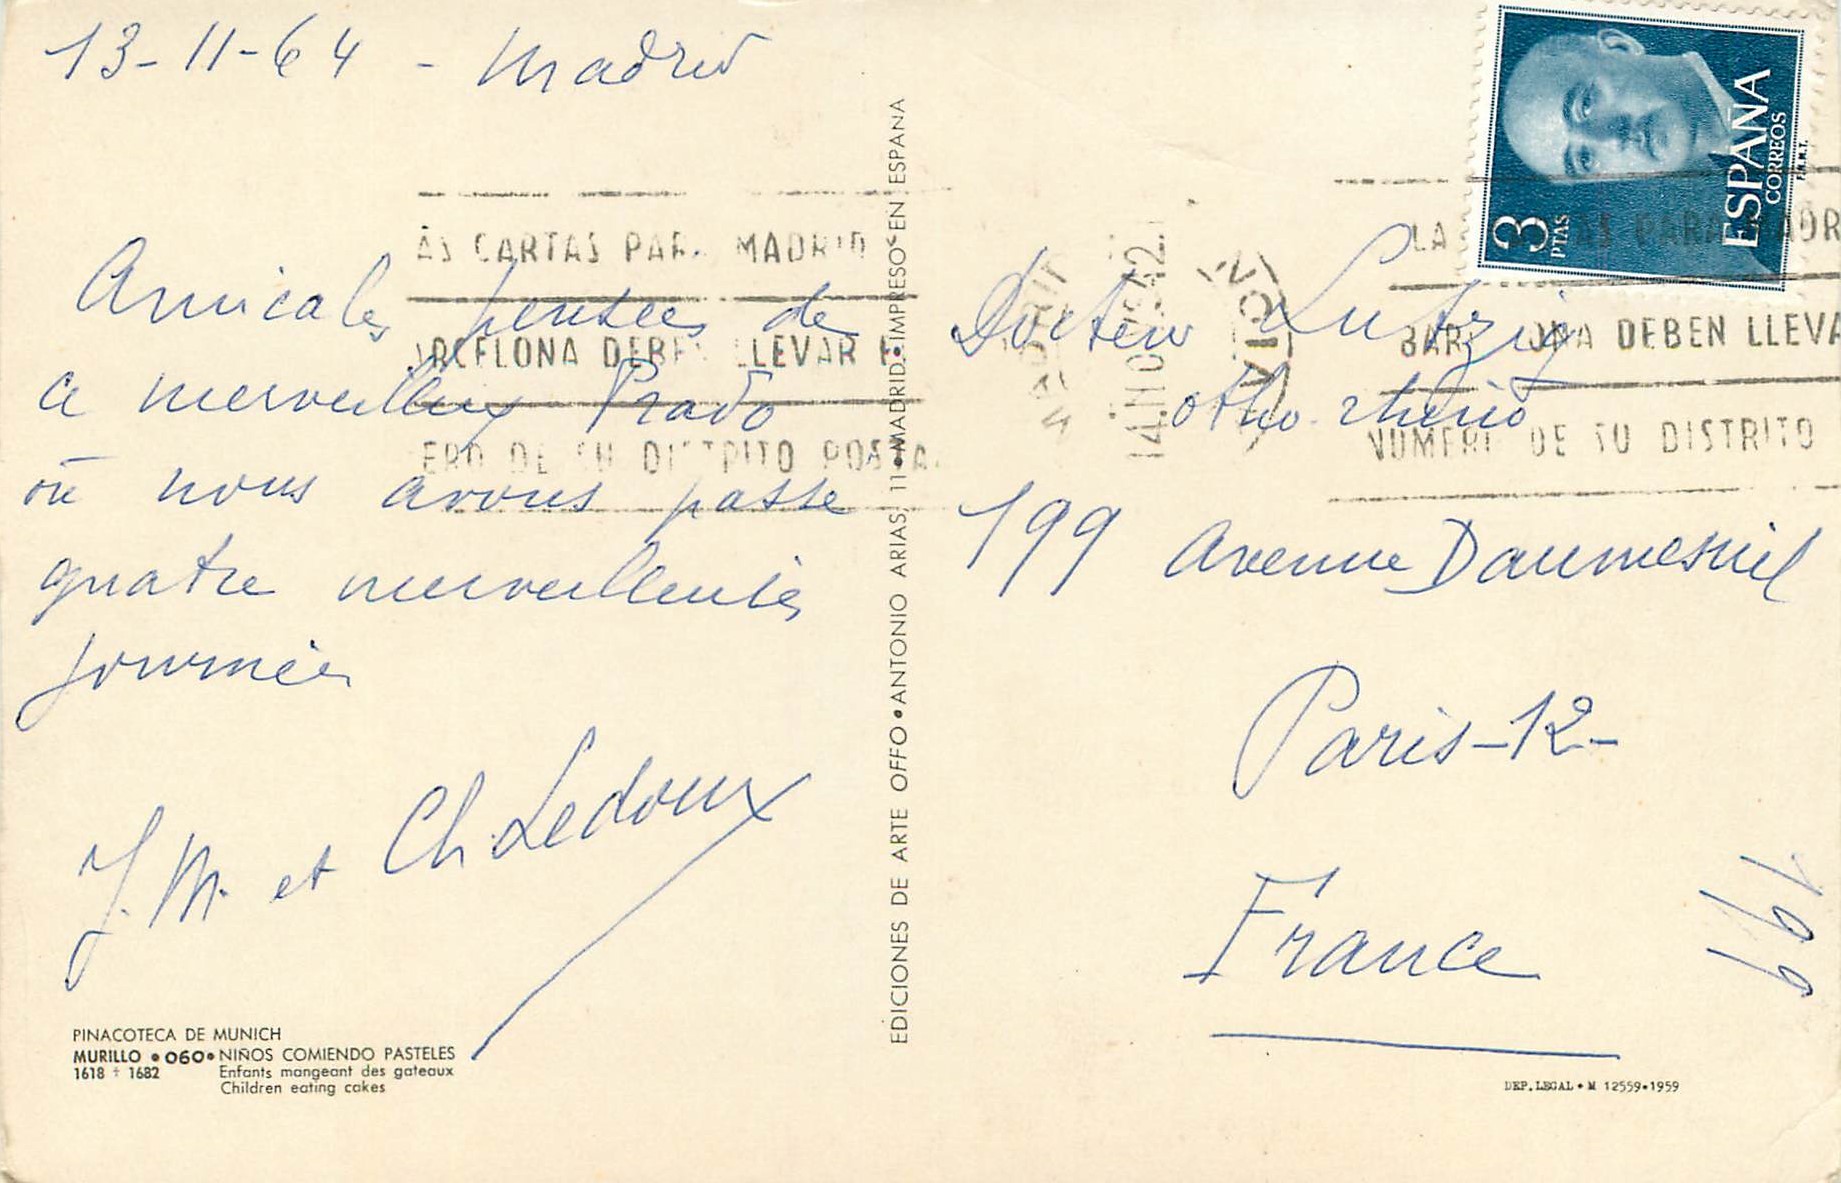 13-11-64 - Madrid
Amicales pensées de
ce merveilleux Prado
où nous avons passé
quatre merveilleuses
journées
J. M. et Ch. Ledoux
PINACOTECA DE MUNICH
MURILLO • 060 • NIÑOS COMIENDO PASTELES
1618 † 1682 Enfants mangeant des gateaux
Children eating cakes
EDICIONES DE ARTE OFFO • ANTONIO ARIAS, 11 • MADRID • IMPRESO EN ESPAÑA
AS CARTAS PARA MADRID
ARCELONA DEBEN LLEVAR E
ERO DE SU DISTRITO POSTAL
MADRID
ESPAÑA
CORREOS
3 PTAS
F.N.M.T.
LAS CARTAS PARA MADR
BARCELONA DEBEN LLEVA
NUMERO DE SU DISTRITO
Docteur Lutzig
otho. rhino
199 Avenue Daumesnil
Paris-12-
France
199
DEP. LEGAL • M 12559•1959